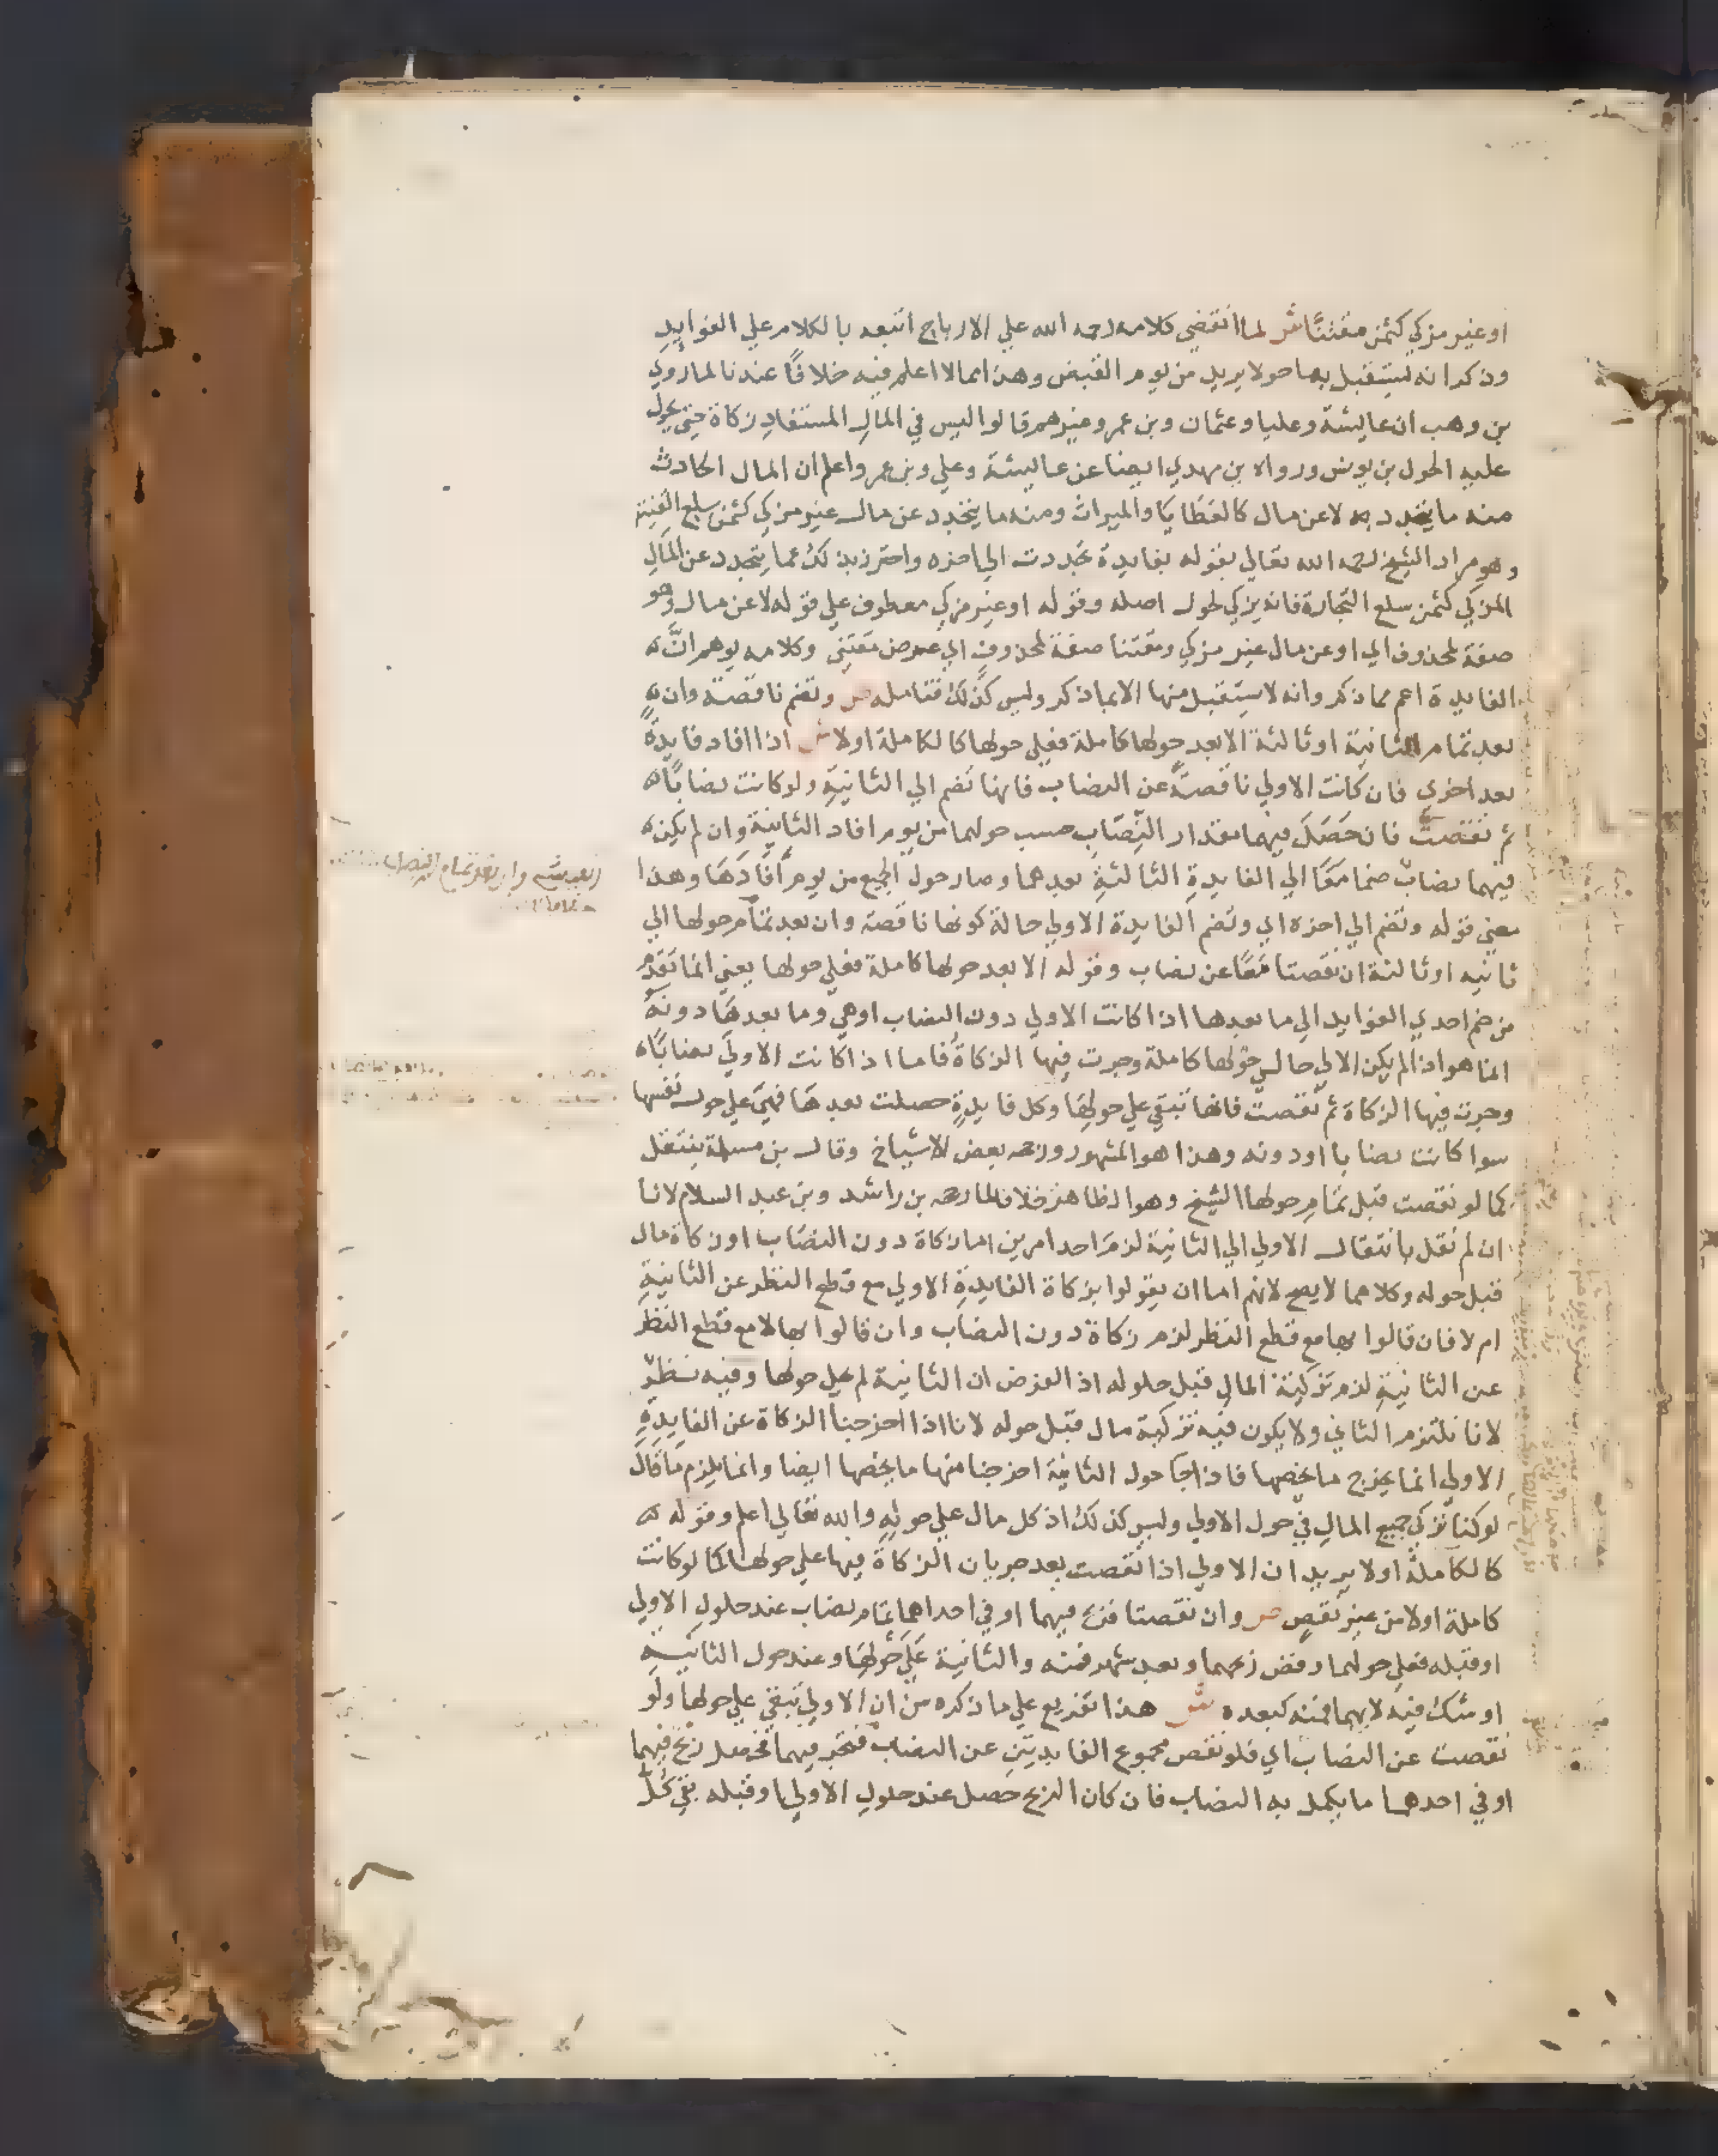 او غير مزكي كثمن مقتنًا ش لما انقضي كلامه رحمه الله علي الارباح اتبعه بالكلام علي الفوايدِ
وذكر انه يستقبل بها حولا يريد من يوم القبض وهذا مما لا اعلم فيه خلافًا عندنا لما روي
بن وهب ان عايشة وعليا وعثمان وبن عمر وغيرهم قالوا ليس في المالِ المستفادِ زكاة حتي يحول
عليه الحول بن يونس ورواه بن مهدي ايضا عن عايشة وعلي وبن عمر واعلم ان المال الحادث
منه ما يتجدد به لا عن مال كالعَطَايَا والميراث ومنه ما يتجدد عن مال غير مزكي كثمن سلع القنية
وهو مراد الشيخ رحمه الله تعالي بقوله بفايدة تجددت الي اخره واحترز بذلك عما يتجدد عن المالِ
المزكي كثمن سلع التجارة فانه يزكي لحول اصله وقوله او غير مزكي معطوف علي قوله لا عن مال وهو
صفة لمحذوف اي او عن مال غير مزكي ومقتنا صفة لمحذوفٍ اي عرض مقتني وكلامه يوهم انَّ
الفايدة اعم مما ذكر وانه لا يستقبل منها الا بما ذكر وليس كذلك فتامله ص وتضم ناقصة وان
بعد تمام الثانية او ثالثة الا بعد حولها كاملة فعلي حولها كالكاملة اولا ش اذا افاد فايدةً
بعد اخري فان كانت الاولي ناقصةً عن النصاب فانها تضم الي الثانيةِ ولو كانت نصابًا
ثم نقصتْ فان حَصَلَ فيهما مقدار النِّصَابِ حسب حولهما من يوم افاد الثانية وان لم يكن
فيهما نصابٌ ضما مَعًا الي الفايدةِ الثالثةِ بعدهما وصار حول الجميع من يوم أفَادَهَا وهذا
معني قوله وتضم الي اخره اي وتضم الفايدة الاولي حالة كونها ناقصة وان بعد تمام حولها الي
ثانيه او ثالثة ان نقصتا مَعًا عن نصاب وقوله الا بعد حولها كاملة فعلي حولها يعني انما تقدم
من ضم احدي الفوايد الي ما بعدها اذا كانت الاولي دون النصاب او هي وما بعدهَا دونهُ
انما هو اذا لم يكن الاولي حال حوْلها كاملة وجرت فيها الزكاةُ فاما اذا كانت الاوليَ نصابًا
وجرت فيها الزكاة ثم نقصتْ فانها تبقي علي حولهَا وكل فايدةٍ حصلت بعدهَا فهيَ علي حول نفسها
سوا كانت نصابا او دونه وهذا هو المشهور ورجحه بعض الاشياخ وقال بن مسلمة ينتقل
كما لو نقصت قبل تمامِ حولها الشيخ وهو الظاهر خلافا لما رجحه بن راشد وبن عبد السلام لانا
ان لم نقل بانتقال الاولي الي الثانية لزمَ احد امرين اما زكاة دون النصَاب او زكاة مال
قبل حوله وكلاهما لا يصح لانهم اما ان يقولوا بزكاة الفايدةِ الاولي مع قطع النظر عن الثانيةِ
ام لا فان قالوا بها مع قطع النظر لزم زكاة دون النصاب وان قالوا بها لا مع قطع النظرَ
عن الثانيةِ لزم تزكية المالِ قبل حلوله اذ الفرض ان الثانية لم يحل حولها وفيه نظرٌ
لانا نلتزم الثاني ولا يكون فيه تزكية مال قبل حوله لانا اذا اخرجنا الزكاة عن الفايدةِ
الاولي انما يخرج ما يخصها فاذا جا حول الثانية اخرجنا منها ما يخصها ايضا وانما يلزم مَا قال
لو كنا نزكي جميع المالِ في حول الاولي وليس كذلك اذ كل مال علي حولِهِ والله تعالي اعلم وقوله
كالكاملة اولا يريد ان الاولي اذا نقصت بعد جريان الزكاة فيها علي حولها كما لو كانت
كاملة اولا من غير نقصٍ ص وان نقصتا فربح فيهما او في احداهما تمام نصاب عند حلولِ الاولي
او قبله فعلي حولهما وفض ربحهما وبعد شهر فمنه والثانية عَلَي حَوْلِهَا وعند حول الثانيةِ
او شك فيه لايهما فمنه كبعده ش هذا تفريع علي ما ذكره من ان الاولي تبقي علي حولها ولَو
نقصت عن النصاب اي فلو نقص مجموع الفايدتين عن النصاب فتجر فيهما فحصل ربح فيهما
او في احدهما ما يكمل به النصاب فان كان الربح حصل عند حلولِ الاولي او قبله بقي كُلٌ